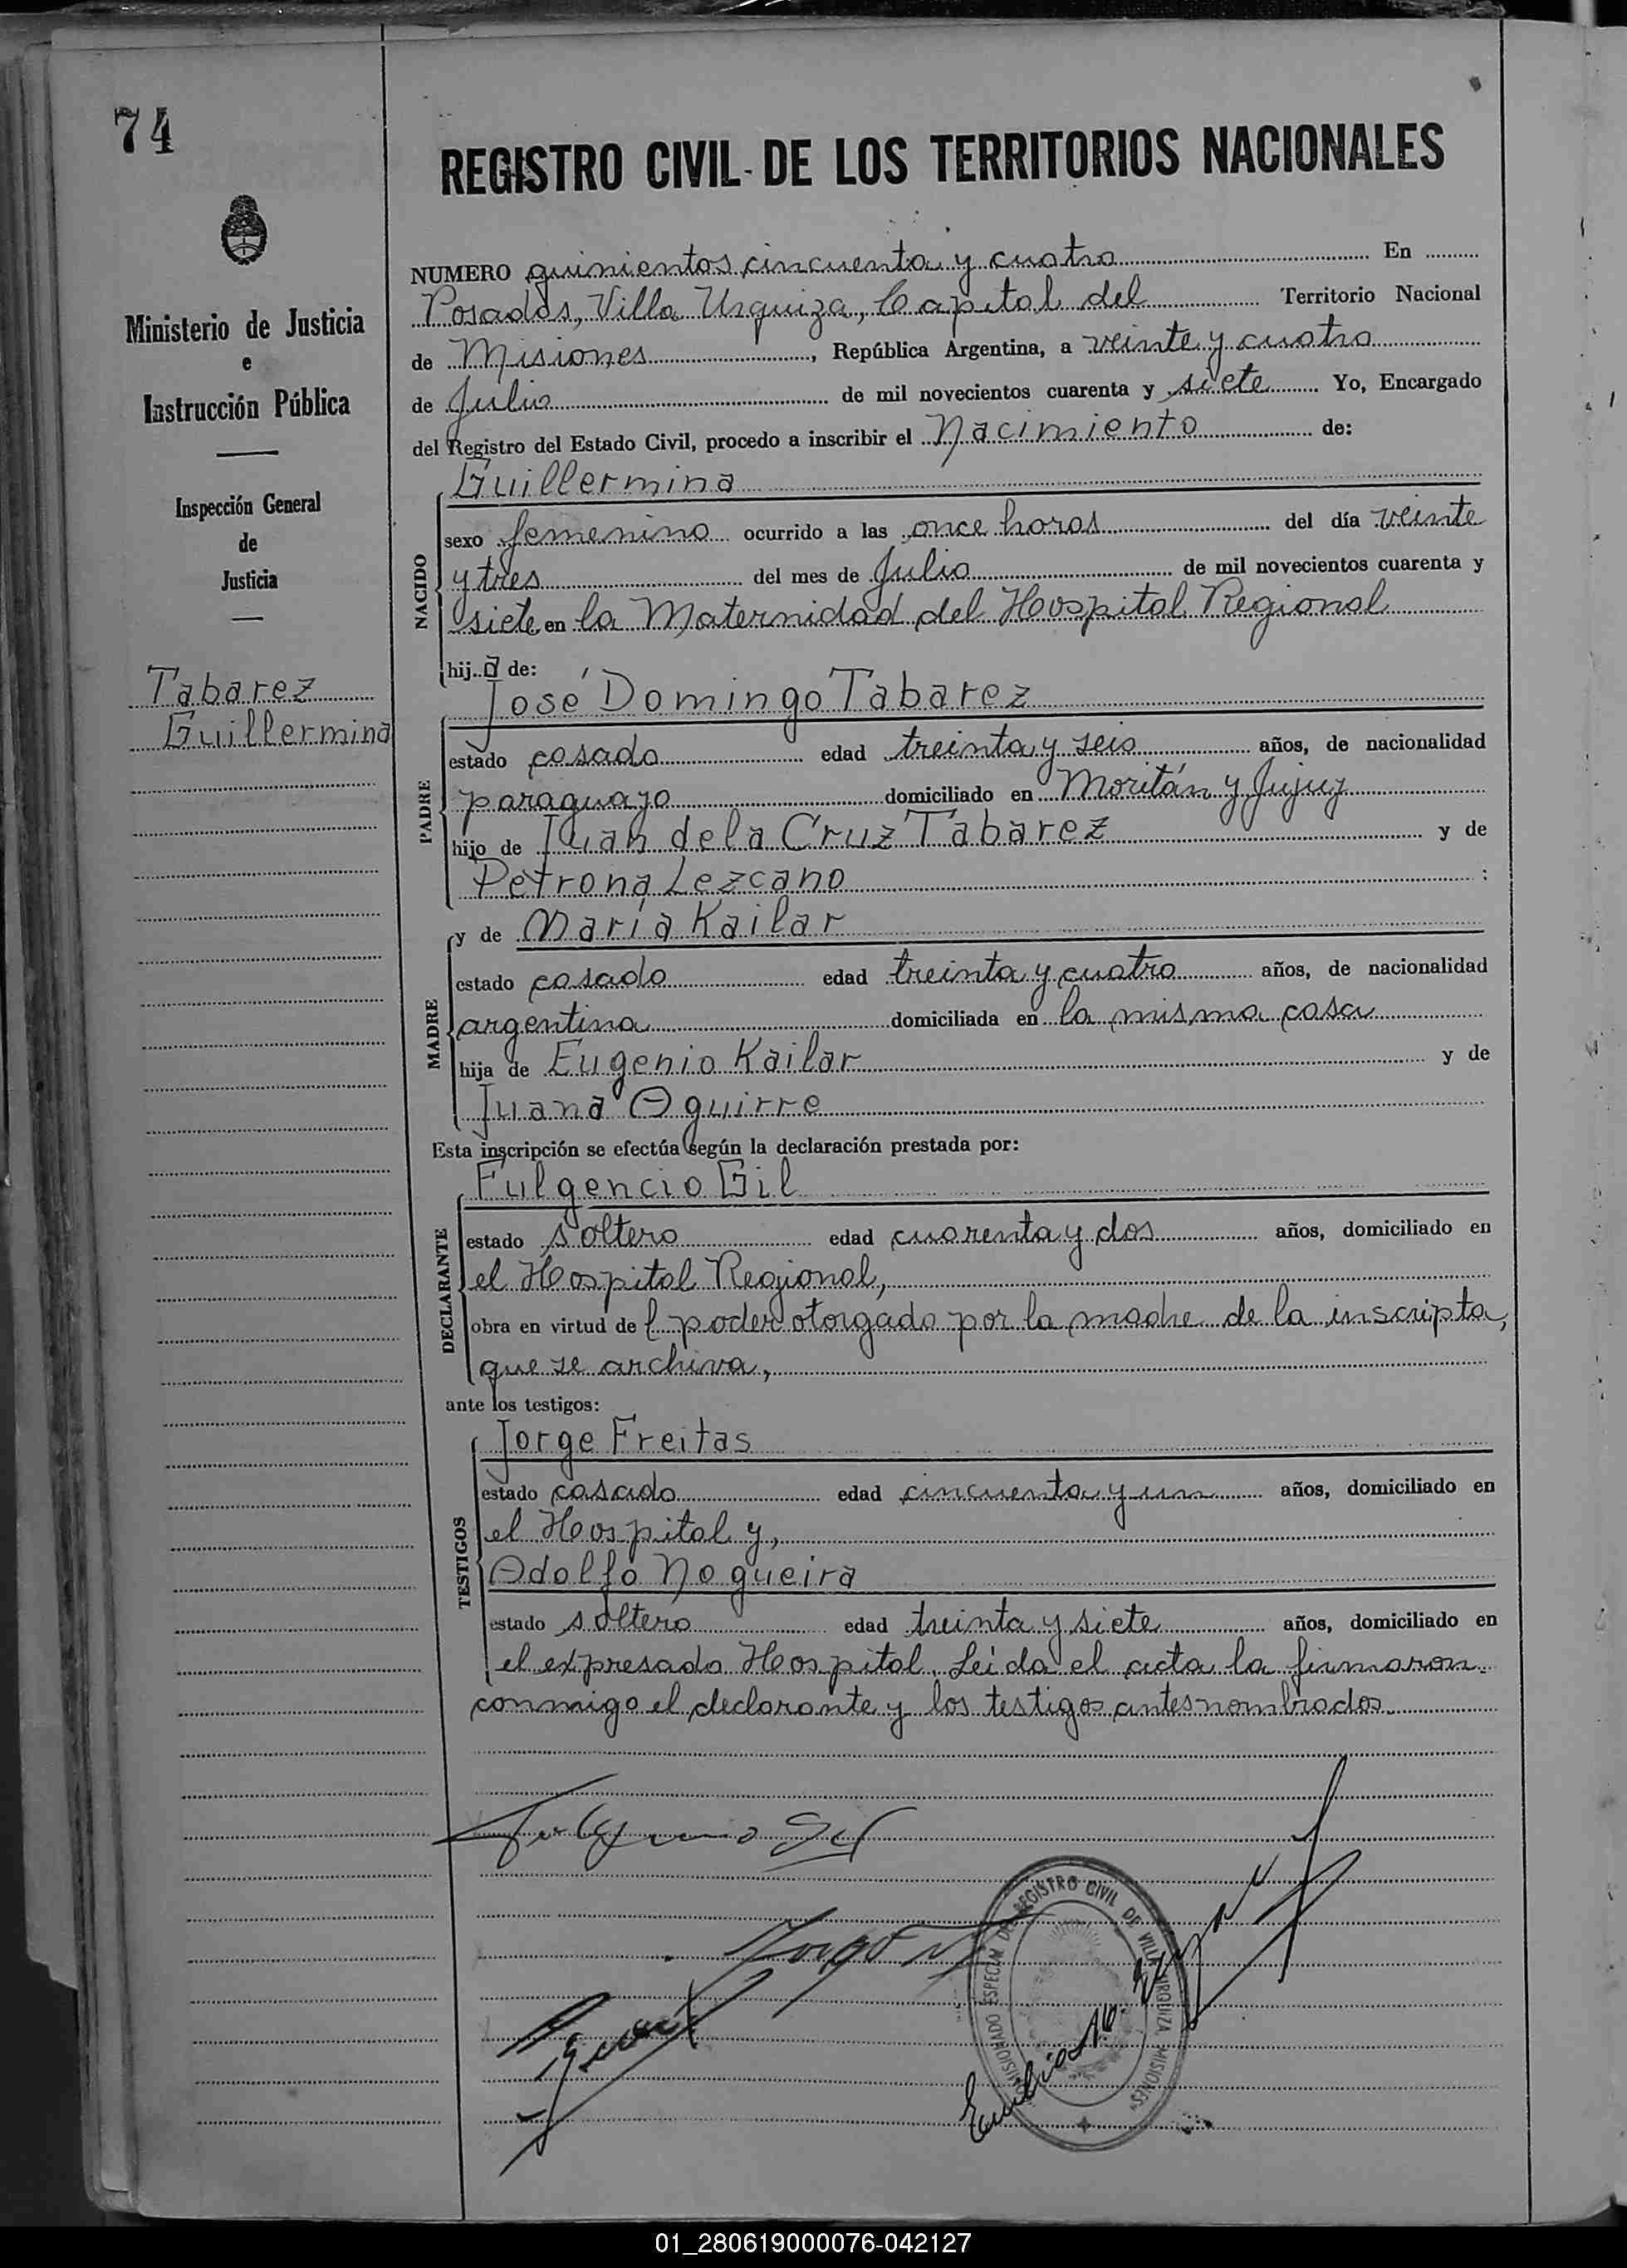 74
REGISTRO CIVIL DE LOS TERRITORIOS NACIONALES
Ministerio de Justicia
e
Instrucción Pública
Inspección General
de
Justicia
Tabarez
Guillermina
NUMERO quinientos cincuenta y cuatro En
Posadas, Villa Urquiza, Capital del Territorio Nacional
de Misiones, República Argentina, a veinte y cuatro
de Julio de mil novecientos cuarenta y siete Yo, Encargado
del Registro del Estado Civil, procedo a inscribir el Nacimiento de:
Guillermina
NACIDO
sexo femenino ocurrido a las once horas del día veinte
y tres del mes de Julio de mil novecientos cuarenta y
siete en la Maternidad del Hospital Regional
hija de:
José Domingo Tabarez
PADRE
estado casado edad treinta y seis años, de nacionalidad
paraguayo domiciliado en Moritán y Jujuy
hijo de Juan de la Cruz Tabarez y de
Petrona Lezcano :
y de María Kailar
MADRE
estado casado edad treinta y cuatro años, de nacionalidad
argentina domiciliada en la misma casa
hija de Eugenio Kailar y de
Juana Aguirre
Esta inscripción se efectúa según la declaración prestada por:
Fulgencio Gil
DECLARANTE
estado soltero edad cuarenta y dos años, domiciliado en
el Hospital Regional,
obra en virtud del poder otorgado por la madre de la inscripta,
que se archiva,
ante los testigos:
Jorge Freitas
TESTIGOS
estado casado edad cincuenta y un años, domiciliado en
el Hospital y,
Adolfo Nogueira
estado soltero edad treinta y siete años, domiciliado en
el expresado Hospital. Leída el acta la firmaron
conmigo el declarante y los testigos antes nombrados.
Fulgencio Gil
COMISIONADO ESPECIAL DEL REGISTRO CIVIL DE VILLA URQUIZA MISIONES
01_280619000076-042127